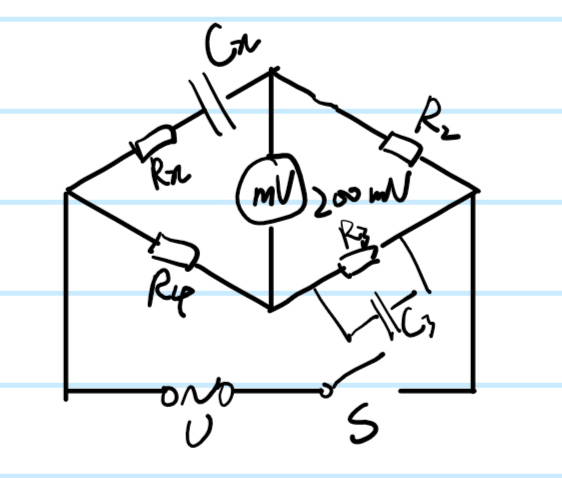 Cx
R2
Rx
mV
200mV
R3
R4
C3
U
S